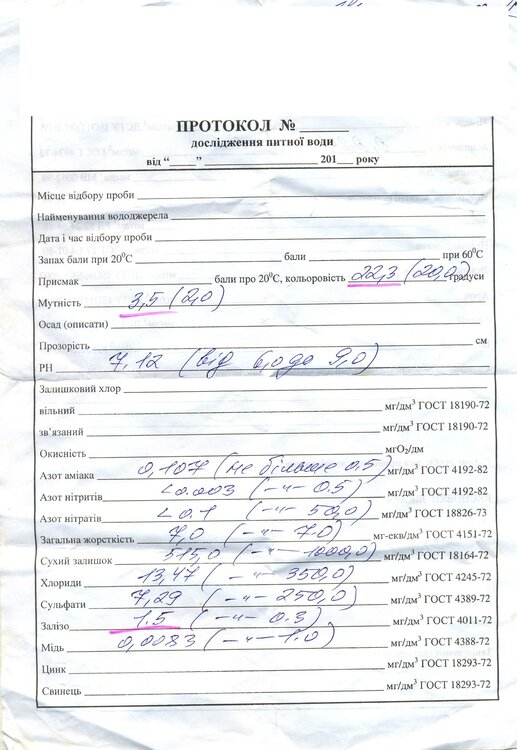 ПРОТОКОЛ №
дослідження питної води
від “____” 201___ року
Місце відбору проби
Найменування вододжерела
Дата і час відбору проби
Запах бали при 20⁰С бали при 60⁰С
Присмак бали про 20⁰С, кольоровість 22,3 (20,0) градуси
Мутність 3,5 (2,0)
Осад (описати)
Прозорість см
РН 7,12 (від 6,0 до 9,0)
Залишковий хлор
вільний мг/дм³ ГОСТ 18190-72
зв'язаний мг/дм³ ГОСТ 18190-72
Окисність мгО₂/дм
Азот аміака 0,107 (не більше 0.5) мг/дм³ ГОСТ 4192-82
Азот нітритів <0.003 (–"– 0.5) мг/дм³ ГОСТ 4192-82
Азот нітратів <0.1 (–"– 50,0) мг/дм³ ГОСТ 18826-73
Загальна жорсткість 7,0 (–"– 7.0) мг-екв/дм³ ГОСТ 4151-72
Сухий залишок 515,0 (–"– 1000,0) мг/дм³ ГОСТ 18164-72
Хлориди 13,47 (–"– 350,0) мг/дм³ ГОСТ 4245-72
Сульфати 7,29 (–"– 250,0) мг/дм³ ГОСТ 4389-72
Залізо 1.5 (–"– 0.3) мг/дм³ ГОСТ 4011-72
Мідь 0,0083 (–"– 1.0) мг/дм³ ГОСТ 4388-72
Цинк мг/дм³ ГОСТ 18293-72
Свинець мг/дм³ ГОСТ 18293-72